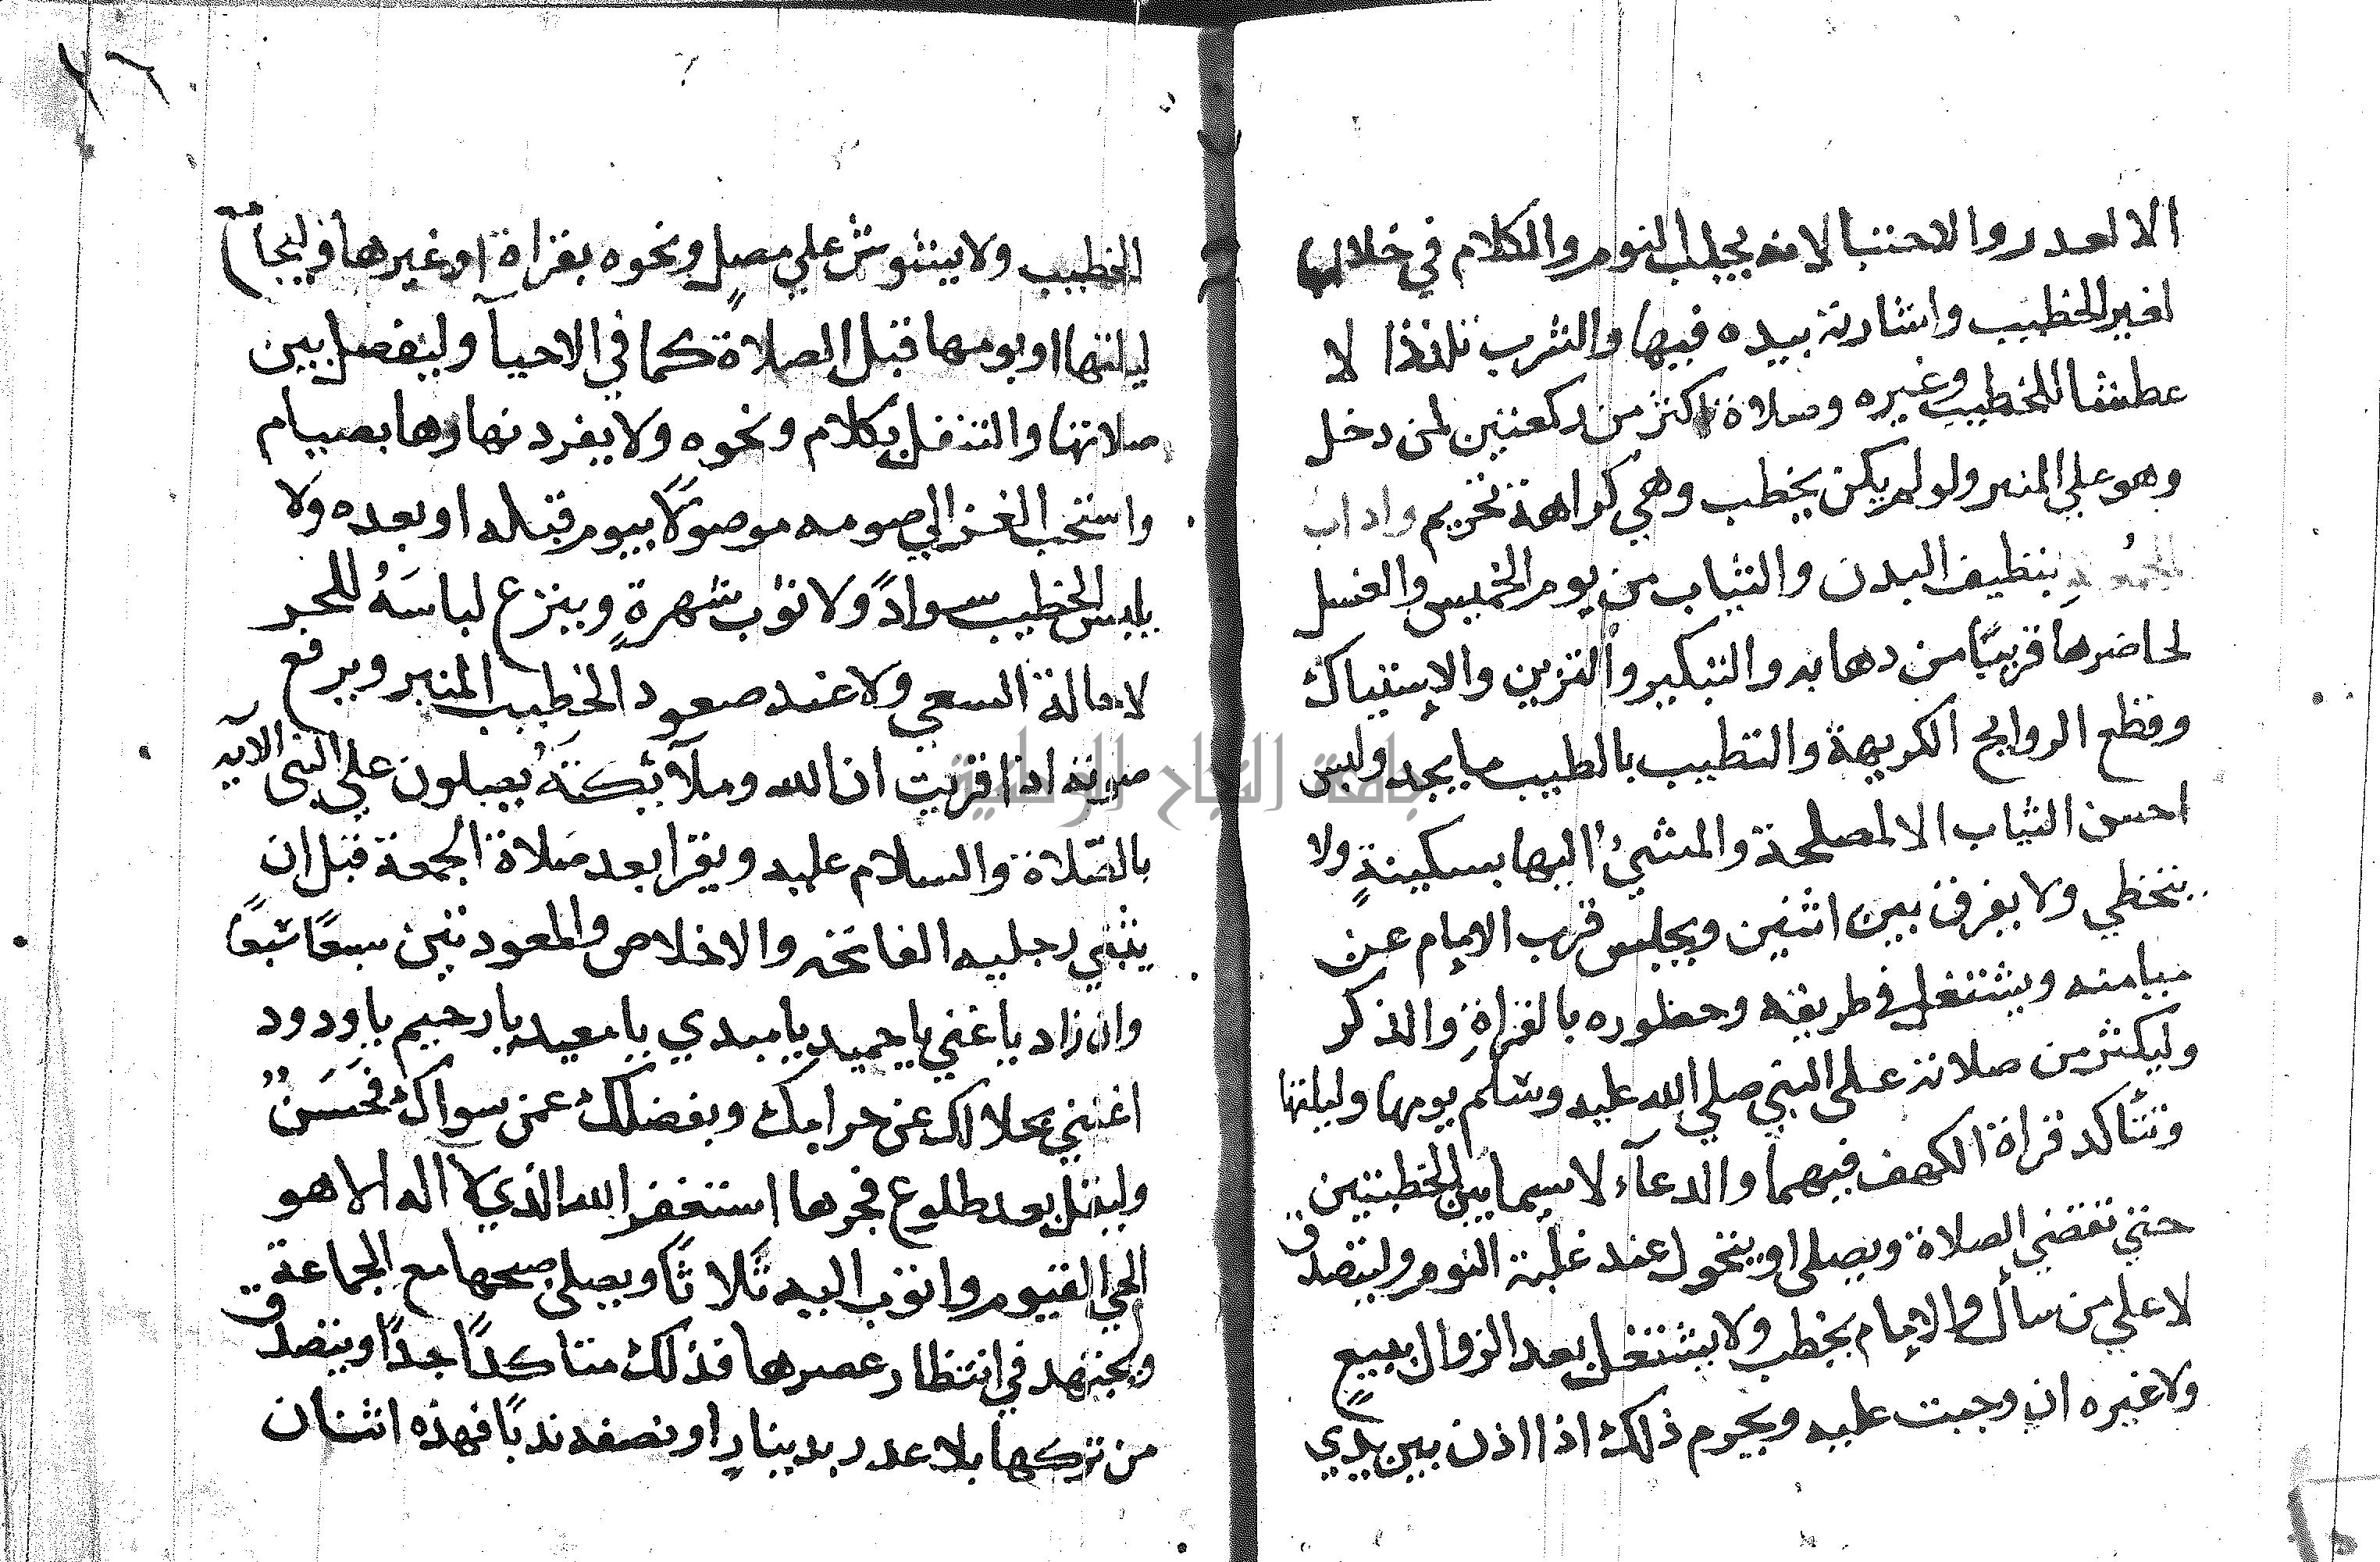 الا لعدر والاحتبا لانه يجلب النوم والكلام في خلالها
لغير الخطيب واشارته بيده فيها والشرب تلذذا لا
عطشا للخطيب وغيره وصلاة اكثر من ركعتين لمن دخل
وهو علي المنبر ولو لم يكن يخطب وهي كراهة تحريم واداب
الجمُعةِ تنظيف البدن والثياب من يوم الخميس والغسل
لحاضرها قريبًا من دهابه والتبكير والتزين والاستياك
وقطع الروايح الكريهة والتطيب بالطيب ما يجد ولبس
احسن الثياب الا لمصلحة والمشئُ اليها بسكينةٍ ولا
يتخطي ولا يفرق بين اثنين ويجلس قرب الامام عن
ميامنه ويشتغل في طريقه وحضوره بالقراةِ والذكر
وليكثر من صلاته على النبي صلي الله عليه وسلم يومها وليلتها
وتتأكد قراة الكهف فيهما والدعآء لا سيما بين الخطبتين
حتي تقضي الصلاة ويصلى او يتحول عند غلبة النوم وليتصدق
لا علي من سأل والامام يخطب ولا يشتغل بعد الزوال ببيع
ولا غيره ان وجبت عليه ويحرم ذلك اذا اذن بين يدي
٢٦
الخطيب ولا يشوش علي مصلٍ ونحوه بقراة او غيرها وليجامع
ليلتها او يومها قبل الصلاة كما في الاحيآ وليفصل بين
صلاتها والتنفل بكلام ونحوه ولا يفرد نهارها بصيام
واستحب الغزالي صومه موصولًا بيوم قبله او بعده ولا
يلبس الخطيب سوادً ولا ثوب شهرةٍ وينزع لباسَهُ للحر
لا حالة السعي ولا عند صعود الخطيب المنبر ويرفع
صوته اذا قريت ان الله وملآئكتَهُ يصلون علي النبى الآيه
بالصّلاة والسلام عليه ويقرا بعد صَلاة الجمعة قبل ان
يثني رجليه الفاتحه والاخلاص والمعودتين سبعًا سَبعًا
وان زاد يا غني يا حميد يا مبدي يا معيد يا رحيم يا ودود
اغنني بحلالك عن حرامك وبفضلك عمن سواك فحَسَنٌ
وليقل بعد طلوع فجرها استغفر الله الذي لا اله الا هو
الحي القيوم واتوب اليه ثَلاثًا ويصلي صبحها مع الجماعة
وليجتهد في انتظار عصرها فذلك متاكدًا جدًا ويتصدق
من تركها بلا عدر بدينارٍ او نصفه ندبًا فهذه اثنان
جامعة النجاح الوطنية